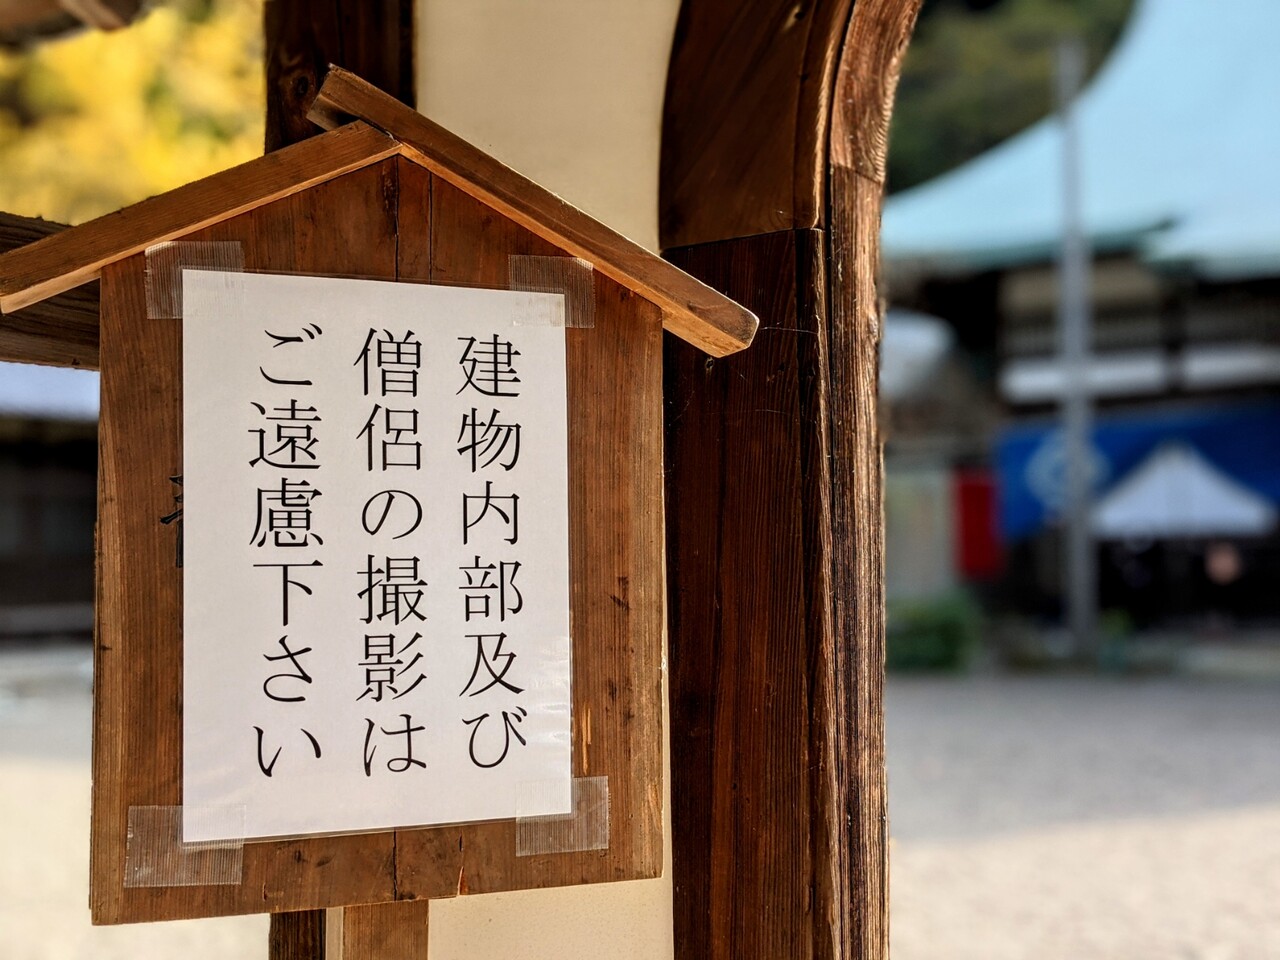 建物内部及び
僧侶の撮影は
ご遠慮下さい